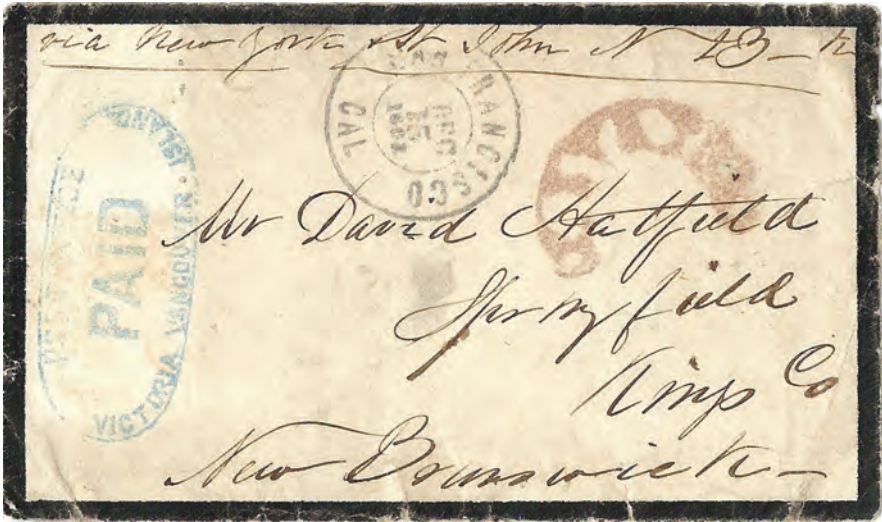 via New York & St John N B
SAN FRANCISCO CAL
DEC
PAID
VICTORIA VANCOUVER ISLAND
Mr David Hatfield
Springfield
Kings Co
New Brunswick